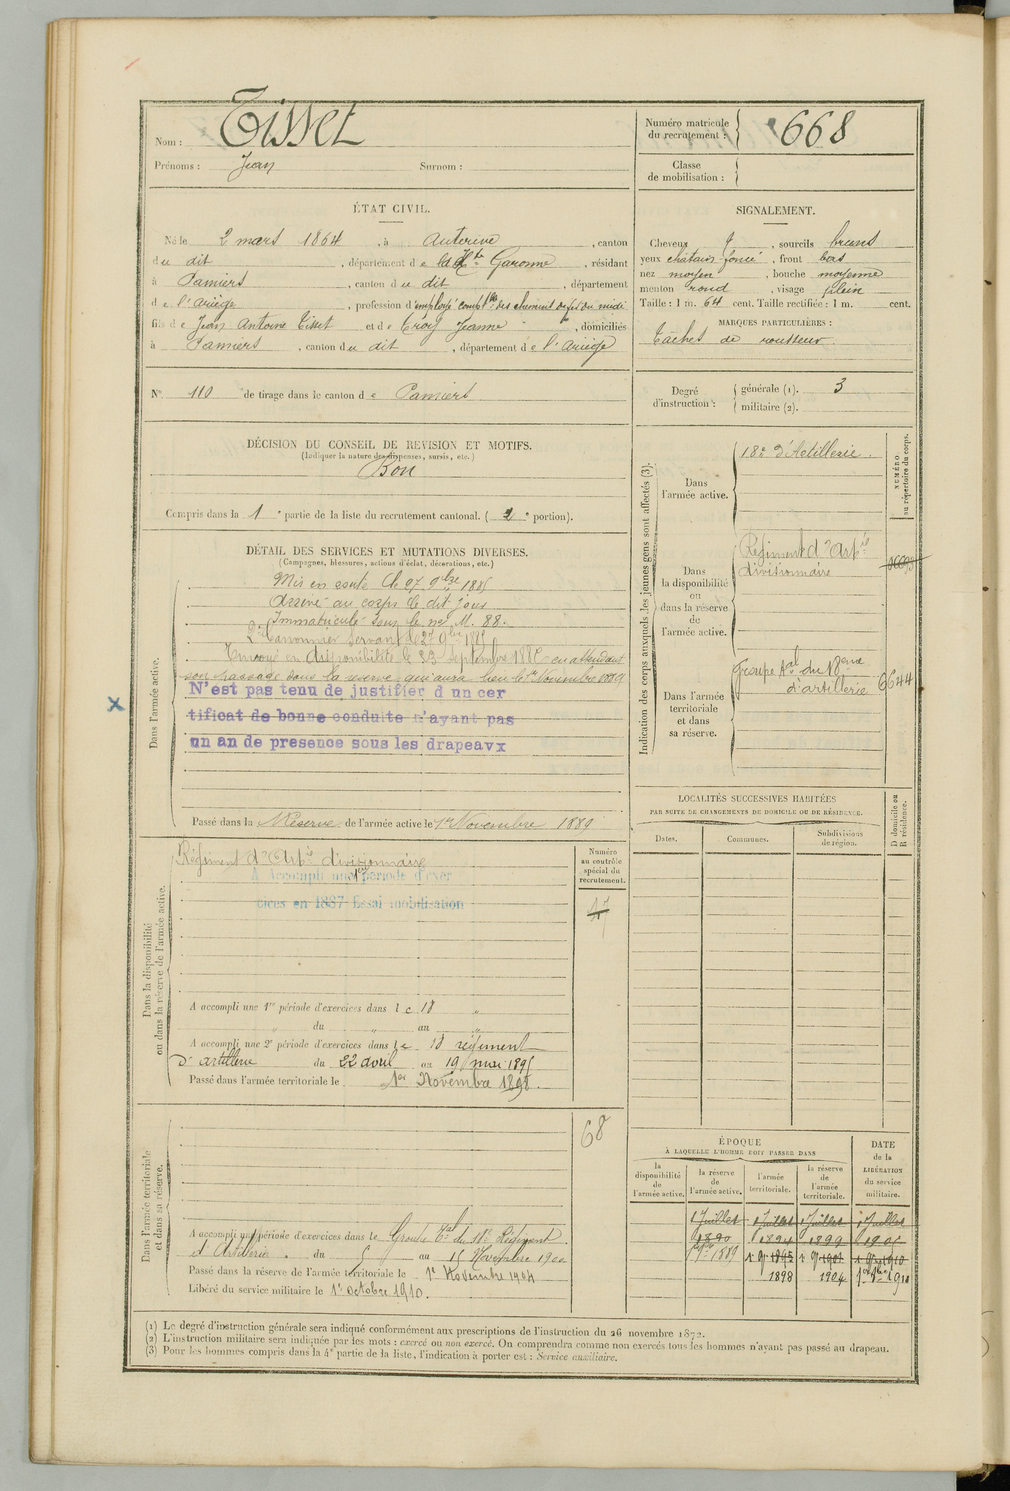 Nom : Tisset
Prénoms : Jean Surnom :
Numéro matricule du recrutement : 668
Classe de mobilisation :
ÉTAT CIVIL.
Né le 2 mars 1864, à Auterive, canton
du dit, département de la Hte Garonne, résidant
à Pamiers, canton du dit, département
de l'ariège, profession d'employé des chemins de fer du midi
fils de Jean Antoine Tisset et de Jeanne, domiciliés
à Pamiers, canton du dit, département de l'ariège
SIGNALEMENT.
Cheveux , sourcils bruns
yeux chatain foncé, front bas
nez moyen, bouche moyenne
menton rond, visage plein
Taille : 1 m. 64 cent. Taille rectifiée : 1 m. cent.
MARQUES PARTICULIÈRES :
Taches de rousseur
N° 110 de tirage dans le canton de Pamiers
Degré d'instruction : générale (1). 3
militaire (2).
DÉCISION DU CONSEIL DE REVISION ET MOTIFS.
(Indiquer la nature des dispenses, sursis, etc.)
Bon
Compris dans la 1e partie de la liste du recrutement cantonal. (2e portion).
DÉTAIL DES SERVICES ET MUTATIONS DIVERSES.
(Campagnes, blessures, actions d'éclat, décorations, etc.)
Dans l'armée active.
Mis en route le 27 9bre 1885
Arrivé au corps le dit jour
Immatriculé sous le no M. 88.
2e Canonnier servant le 9bre 1885
Envoyé en disponibilité le 23 septembre en attendant
son passage dans la réserve qui aura lieu le 1er Novembre 1889
N'est pas tenu de justifier d un cer
tificat de bonne conduite n'ayant pas
un an de presence sous les drapeavx
Passé dans la Réserve de l'armée active le 1er Novembre 1889
Indication des corps auxquels les jeunes gens sont affectés (3).
NUMÉRO au répertoire du corps.
Dans l'armée active.
18e d'Artillerie.
Dans la disponibilité ou dans la réserve de l'armée active.
Régiment d'Artie
divisionnaire
Dans l'armée territoriale et dans sa réserve.
Groupe tal du 18eme
d'artillerie 6644
LOCALITÉS SUCCESSIVES HABITÉES
PAR SUITE DE CHANGEMENTS DE DOMICILE OU DE RÉSIDENCE.
Dates. Communes. Subdivisions de région. D domicile ou R résidence.
Dans la disponibilité ou dans la réserve de l'armée active.
Numéro au contrôle spécial du recrutement.
Régiment d'Artie divisionnaire
A Accompli une 1ere periode d'exer
cices en 1887 Essai mobilisation
A accompli une 1re période d'exercices dans le 18 "
" du " au "
A accompli une 2e période d'exercices dans le 18 régiment
d'artillerie du 22 avril au 19 mai 1895
Passé dans l'armée territoriale le 1er Novembre 1898.
Dans l'armée territoriale et dans sa réserve.
68
A accompli une période d'exercices dans le Groupe tal du 18e Régiment
d'Artillerie. du 5 au 15 Novembre 1900
Passé dans la réserve de l'armée territoriale le 1er Novembre 1904
Libéré du service militaire le 1er octobre 1910.
ÉPOQUE
À LAQUELLE L'HOMME DOIT PASSER DANS
la disponibilité de l'armée active. la réserve de l'armée active. l'armée territoriale. la réserve de l'armée territoriale. DATE de la LIBÉRATION du service militaire.
1 Juillet 1890 1 Juillet 1894 1 Juillet 1899 1 Juillet 1905
1 9bre 1889 1 9bre 1895 1 9bre 1901 1 9bre 1910
1898 1904 1er 1910
(1) Le degré d'instruction générale sera indiqué conformément aux prescriptions de l'instruction du 26 novembre 1872.
(2) L'instruction militaire sera indiquée par les mots : exercé ou non exercé. On comprendra comme non exercés tous les hommes n'ayant pas passé au drapeau.
(3) Pour les hommes compris dans la 4e partie de la liste, l'indication à porter est : Service auxiliaire.